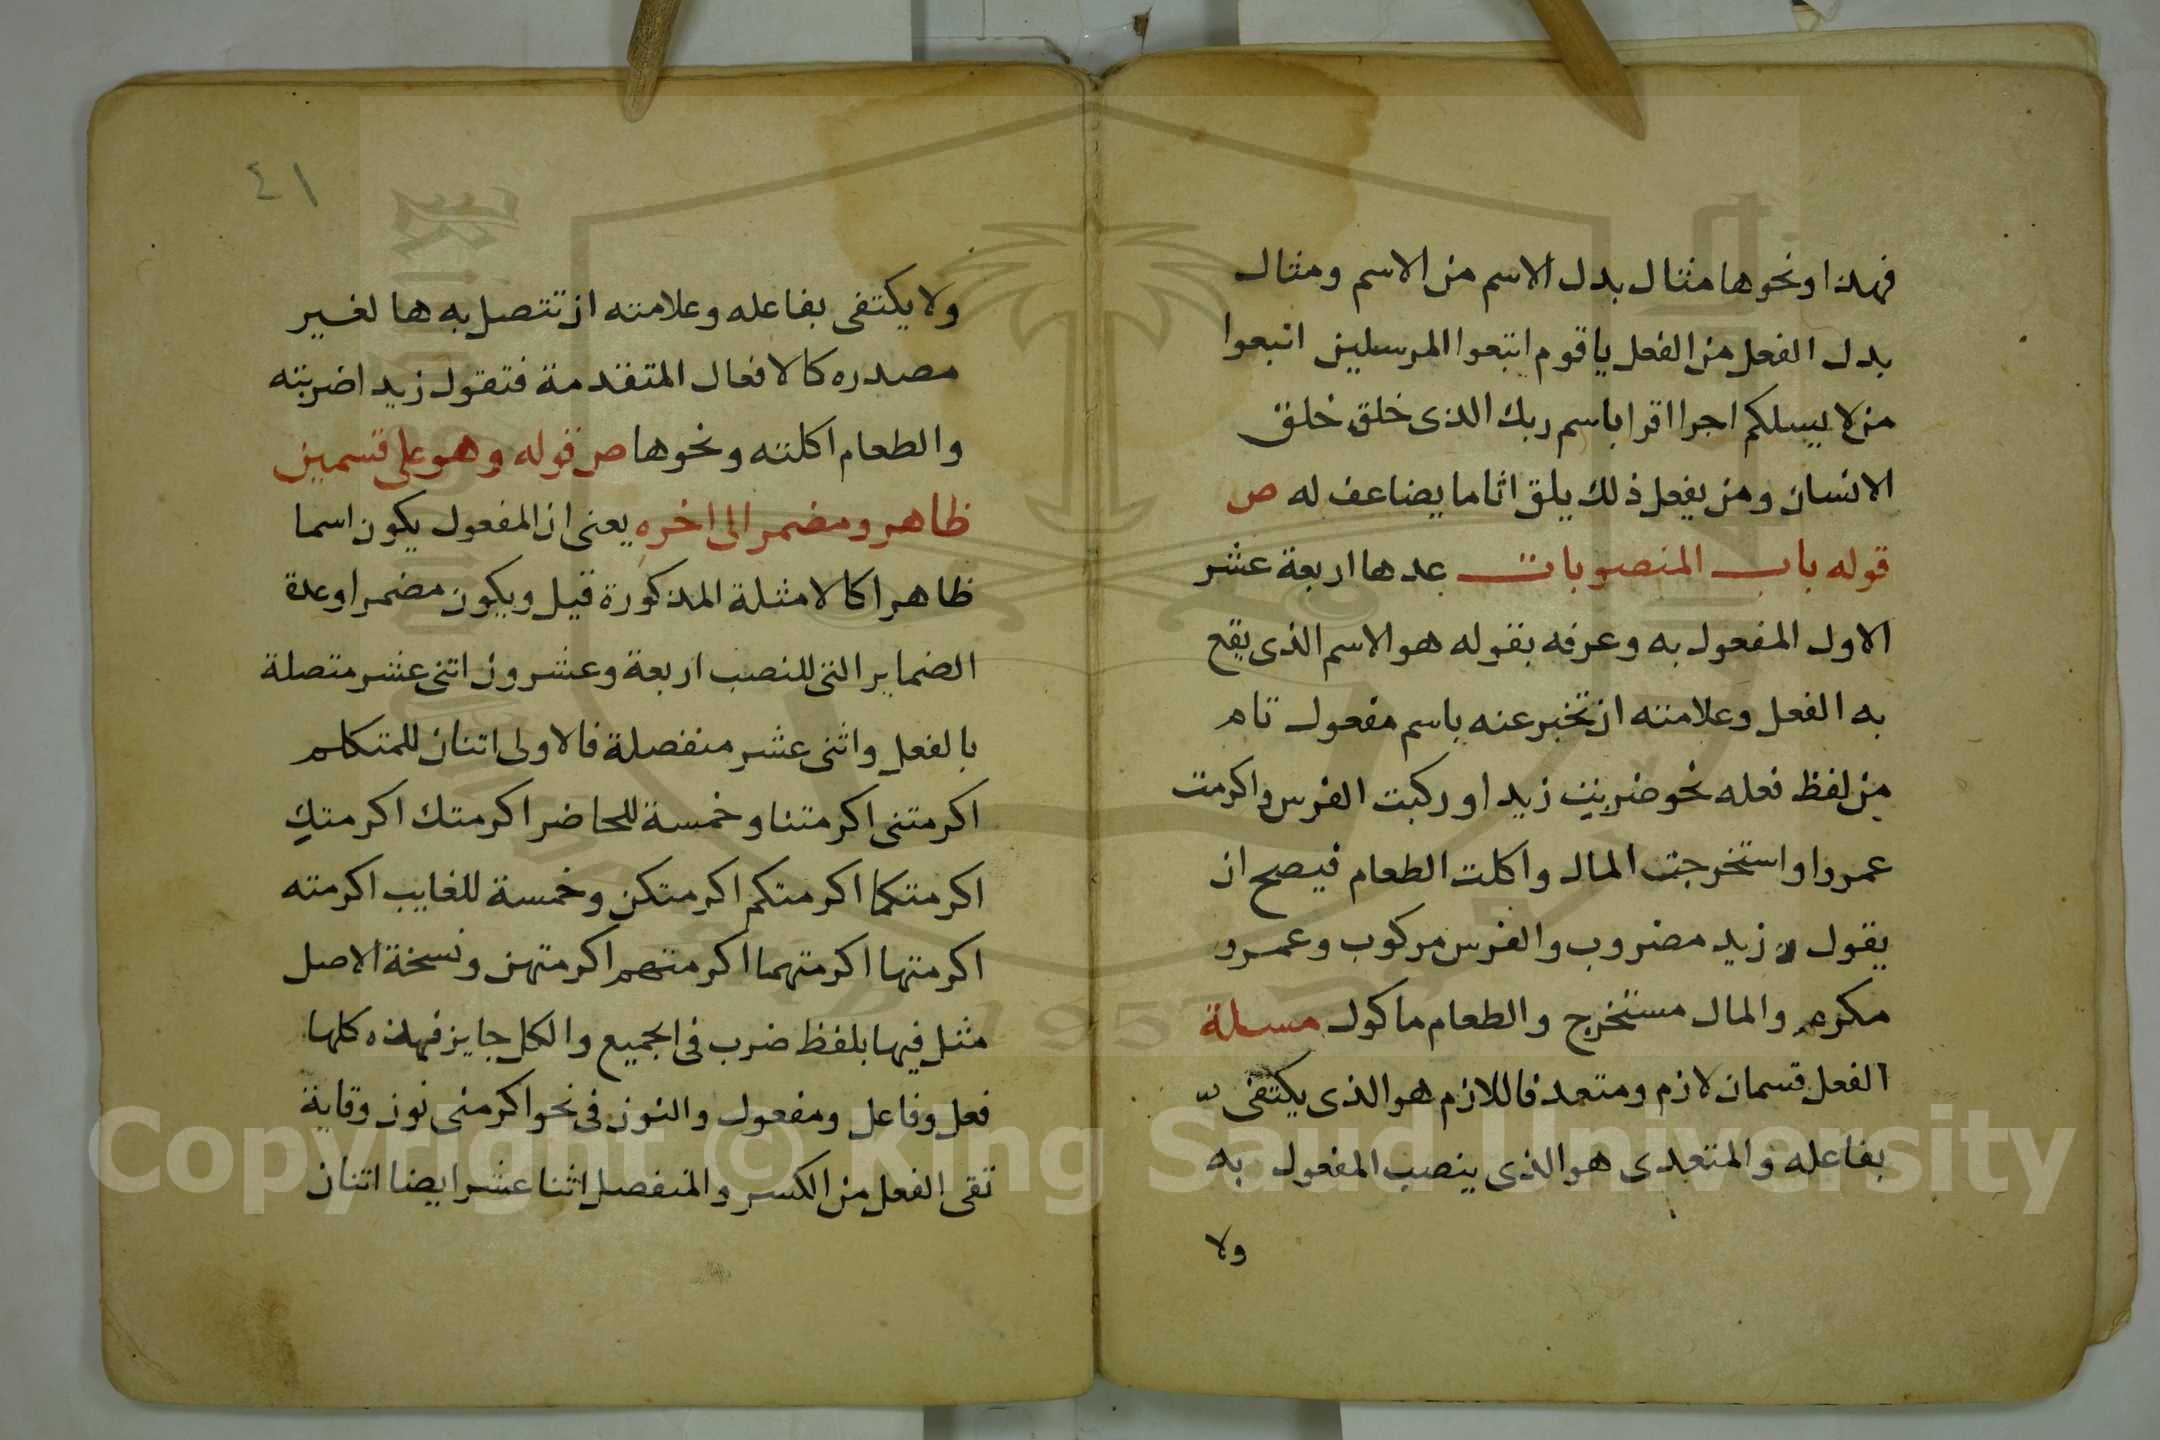 فهذا ونحوها مثال بدل الاسم من الاسم ومثال
بدل الفعل من الفعل يا قوم اتبعوا المرسلين اتبعوا
من لا يسلكم اجرا اقرا باسم ربك الذى خلق خلق
الانسان ومن يفعل ذلك يلق اثاما يضاعف له ص
قوله باب المنصوبات عدها اربعة عشر
الاول المفعول به وعرفه بقوله هو الاسم الذى يقع
به الفعل وعلامته ان تخبر عنه باسم مفعول تام
من لفظ فعله نحو ضربت زيد او ركبت الفرس واكرمت
عمروا واستخرجت المال واكلت الطعام فيصح ان
يقول زيد مضروب والفرس مركوب وعمرو
مكرم والمال مستخرج والطعام ماكول مسلة
الفعل قسمان لازم ومتعد فاللازم هو الذى يكتفى
بفاعله والمتعدى هو الذى ينصب المفعول به
ولا
٤١
ولا يكتفى بفاعله وعلامته ان تتصل به ها لغير
مصدره كالافعال المتقدمة فتقول زيد اضربته
والطعام اكلته ونحوها ص قوله وهو على قسمين
ظاهر ومضمر الى اخره يعنى ان المفعول يكون اسما
ظاهرا كالامثلة المذكورة قيل ويكون مضمرا وعدة
الضماير التى للنصب اربعة وعشرون اتنى عشر متصلة
بالفعل واثنى عشر منفصلة فالاولى اتنان للمتكلم
اكرمتنى اكرمتنا وخمسة للحاضر اكرمتك اكرمتكِ
اكرمتكما اكرمتكم اكرمتكن وخمسة للغايب اكرمته
اكرمتها اكرمتهما اكرمتهم اكرمتهن ونسخة الاصل
مثل فيها بلفظ ضرب فى الجميع والكل جايز فهذه كلها
فعل وفاعل ومفعول والنون فى نحو اكرمنى نون وقاية
تقى الفعل من الكسر والمنفصل اثنا عشر ايضا اتنان
Copyright © King Saud University
1957